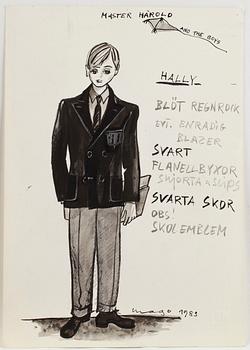 MASTER HAROLD
AND THE BOYS
HALLY
BLÖT REGNROCK
EVT. ENRADIG
BLAZER
SVART
FLANELLBYXOR
SKJORTA & SLIPS
SVARTA SKOR
OBS!
SKOLEMBLEM
mago 1983